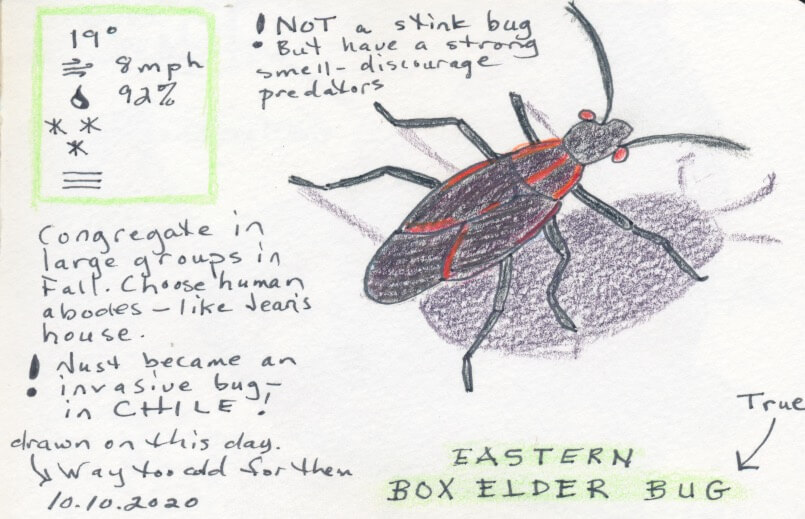 19°
8mph
92%
! NOT a stink bug
• But have a strong
smell - discourage
predators
Congregate in
large groups in
Fall. Choose human
abodes - like Jean's
house.
! Just became an
invasive bug -
in CHILE !
drawn on this day.
↳ Way too cold for them
10.10.2020
True
EASTERN
BOX ELDER BUG